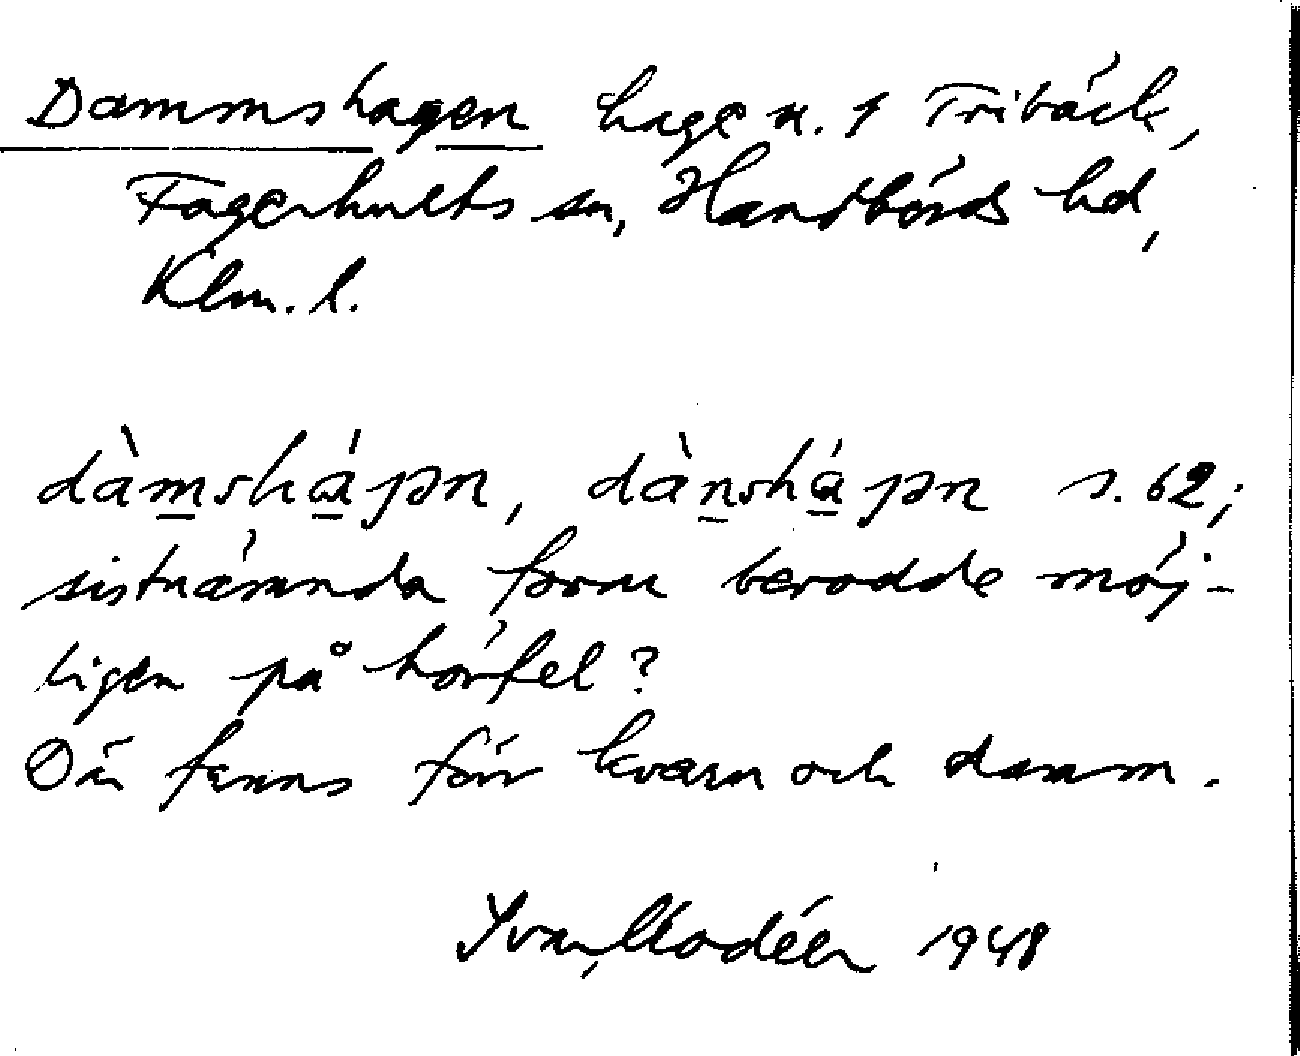 Dammshagen hage n. 1 Tribäck,
Fagerhults sn, Handbörds hd,
Klm. l.
dàmsháɡən, dànsháɡən s. 62;
sistnämnda form berodde möj-
ligen på hörfel?
Där fanns förr kvarn och damm.
Ivar Modéer 1948